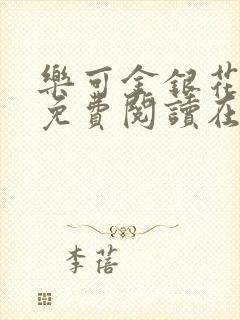 樂可金銀花
免費閱讀在
李蓓